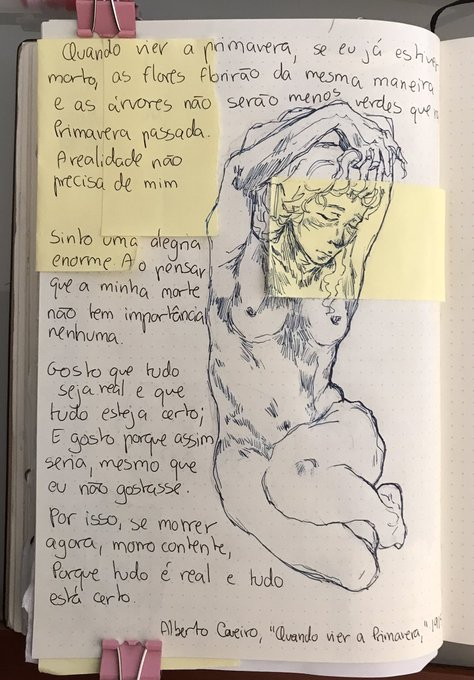 Quando vier a primavera, se eu já estiver
morto, as flores florirão da mesma maneira
e as árvores não serão menos verdes que n
Primavera passada.
A realidade não
precisa de mim
Sinto uma alegria
enorme. Ao pensar
que a minha morte
não tem importância
nenhuma.
Gosto que tudo
seja real e que
tudo esteja certo;
E gosto porque assim
seria, mesmo que
eu não gostasse.
Por isso, se morrer
agora, morro contente,
Porque tudo é real e tudo
está certo.
Alberto Caeiro, "Quando vier a Primavera,"